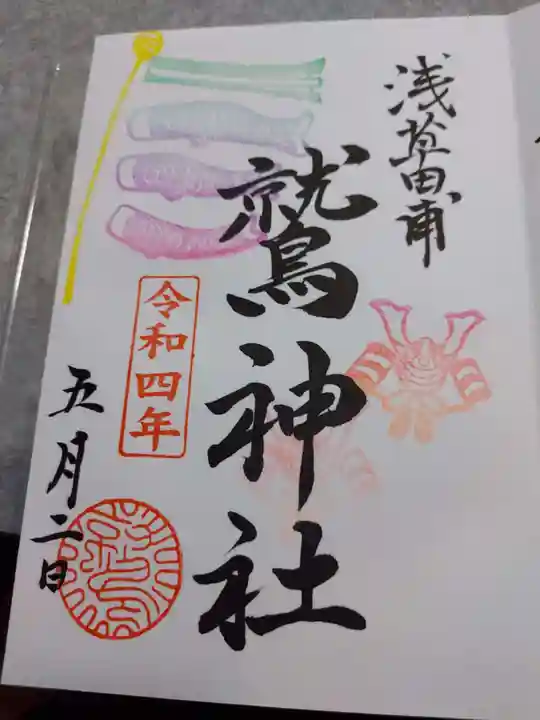 浅草田甫
鷲神社
令和四年
五月二日